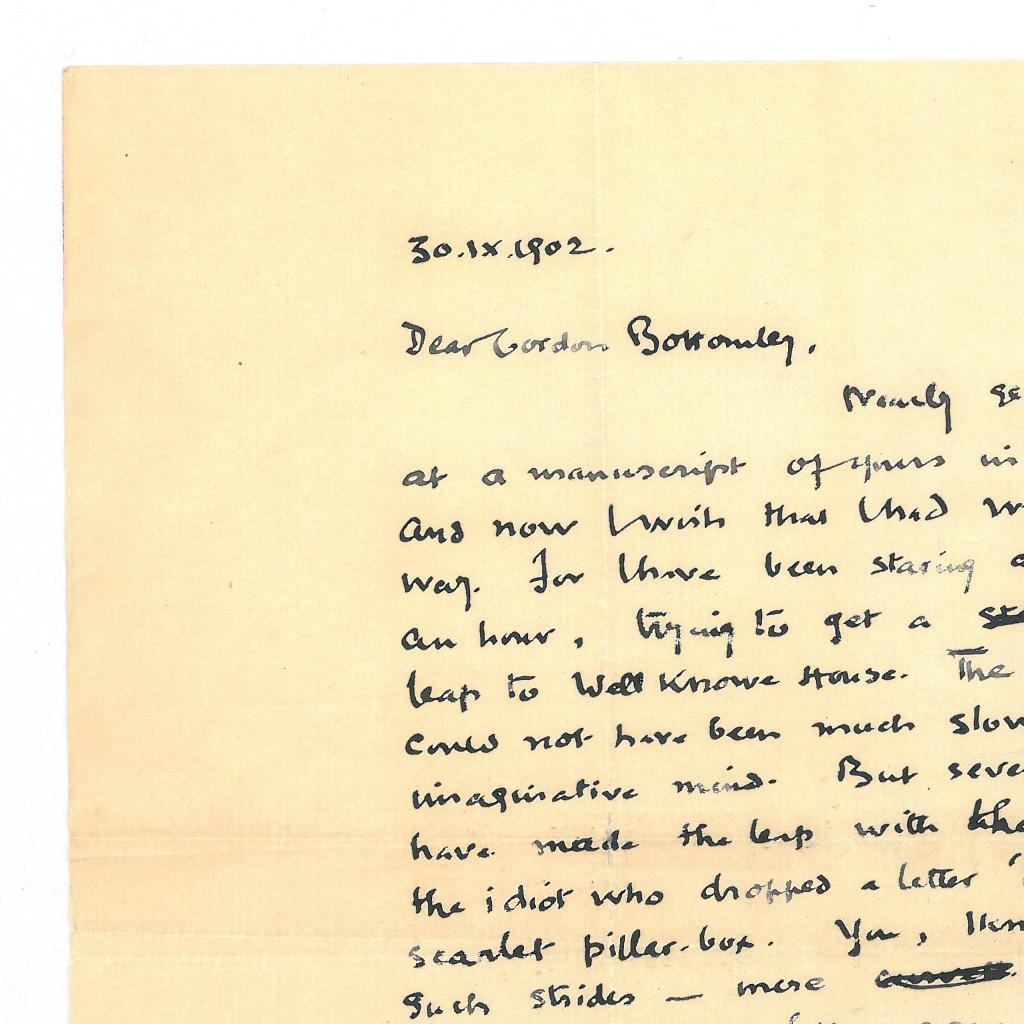 30.IX.1902.
Dear Gordon Bottomley,
Nearly
at a manuscript of yours in
and now I wish that I had
way. For I have been staring
an hour, trying to get a
leap to Well Knowe House. The
could not have been much slow
imaginative mind. But seve
have made the leap with
the idiot who dropped a letter
scarlet pillar-box. You, I
such strides — mere